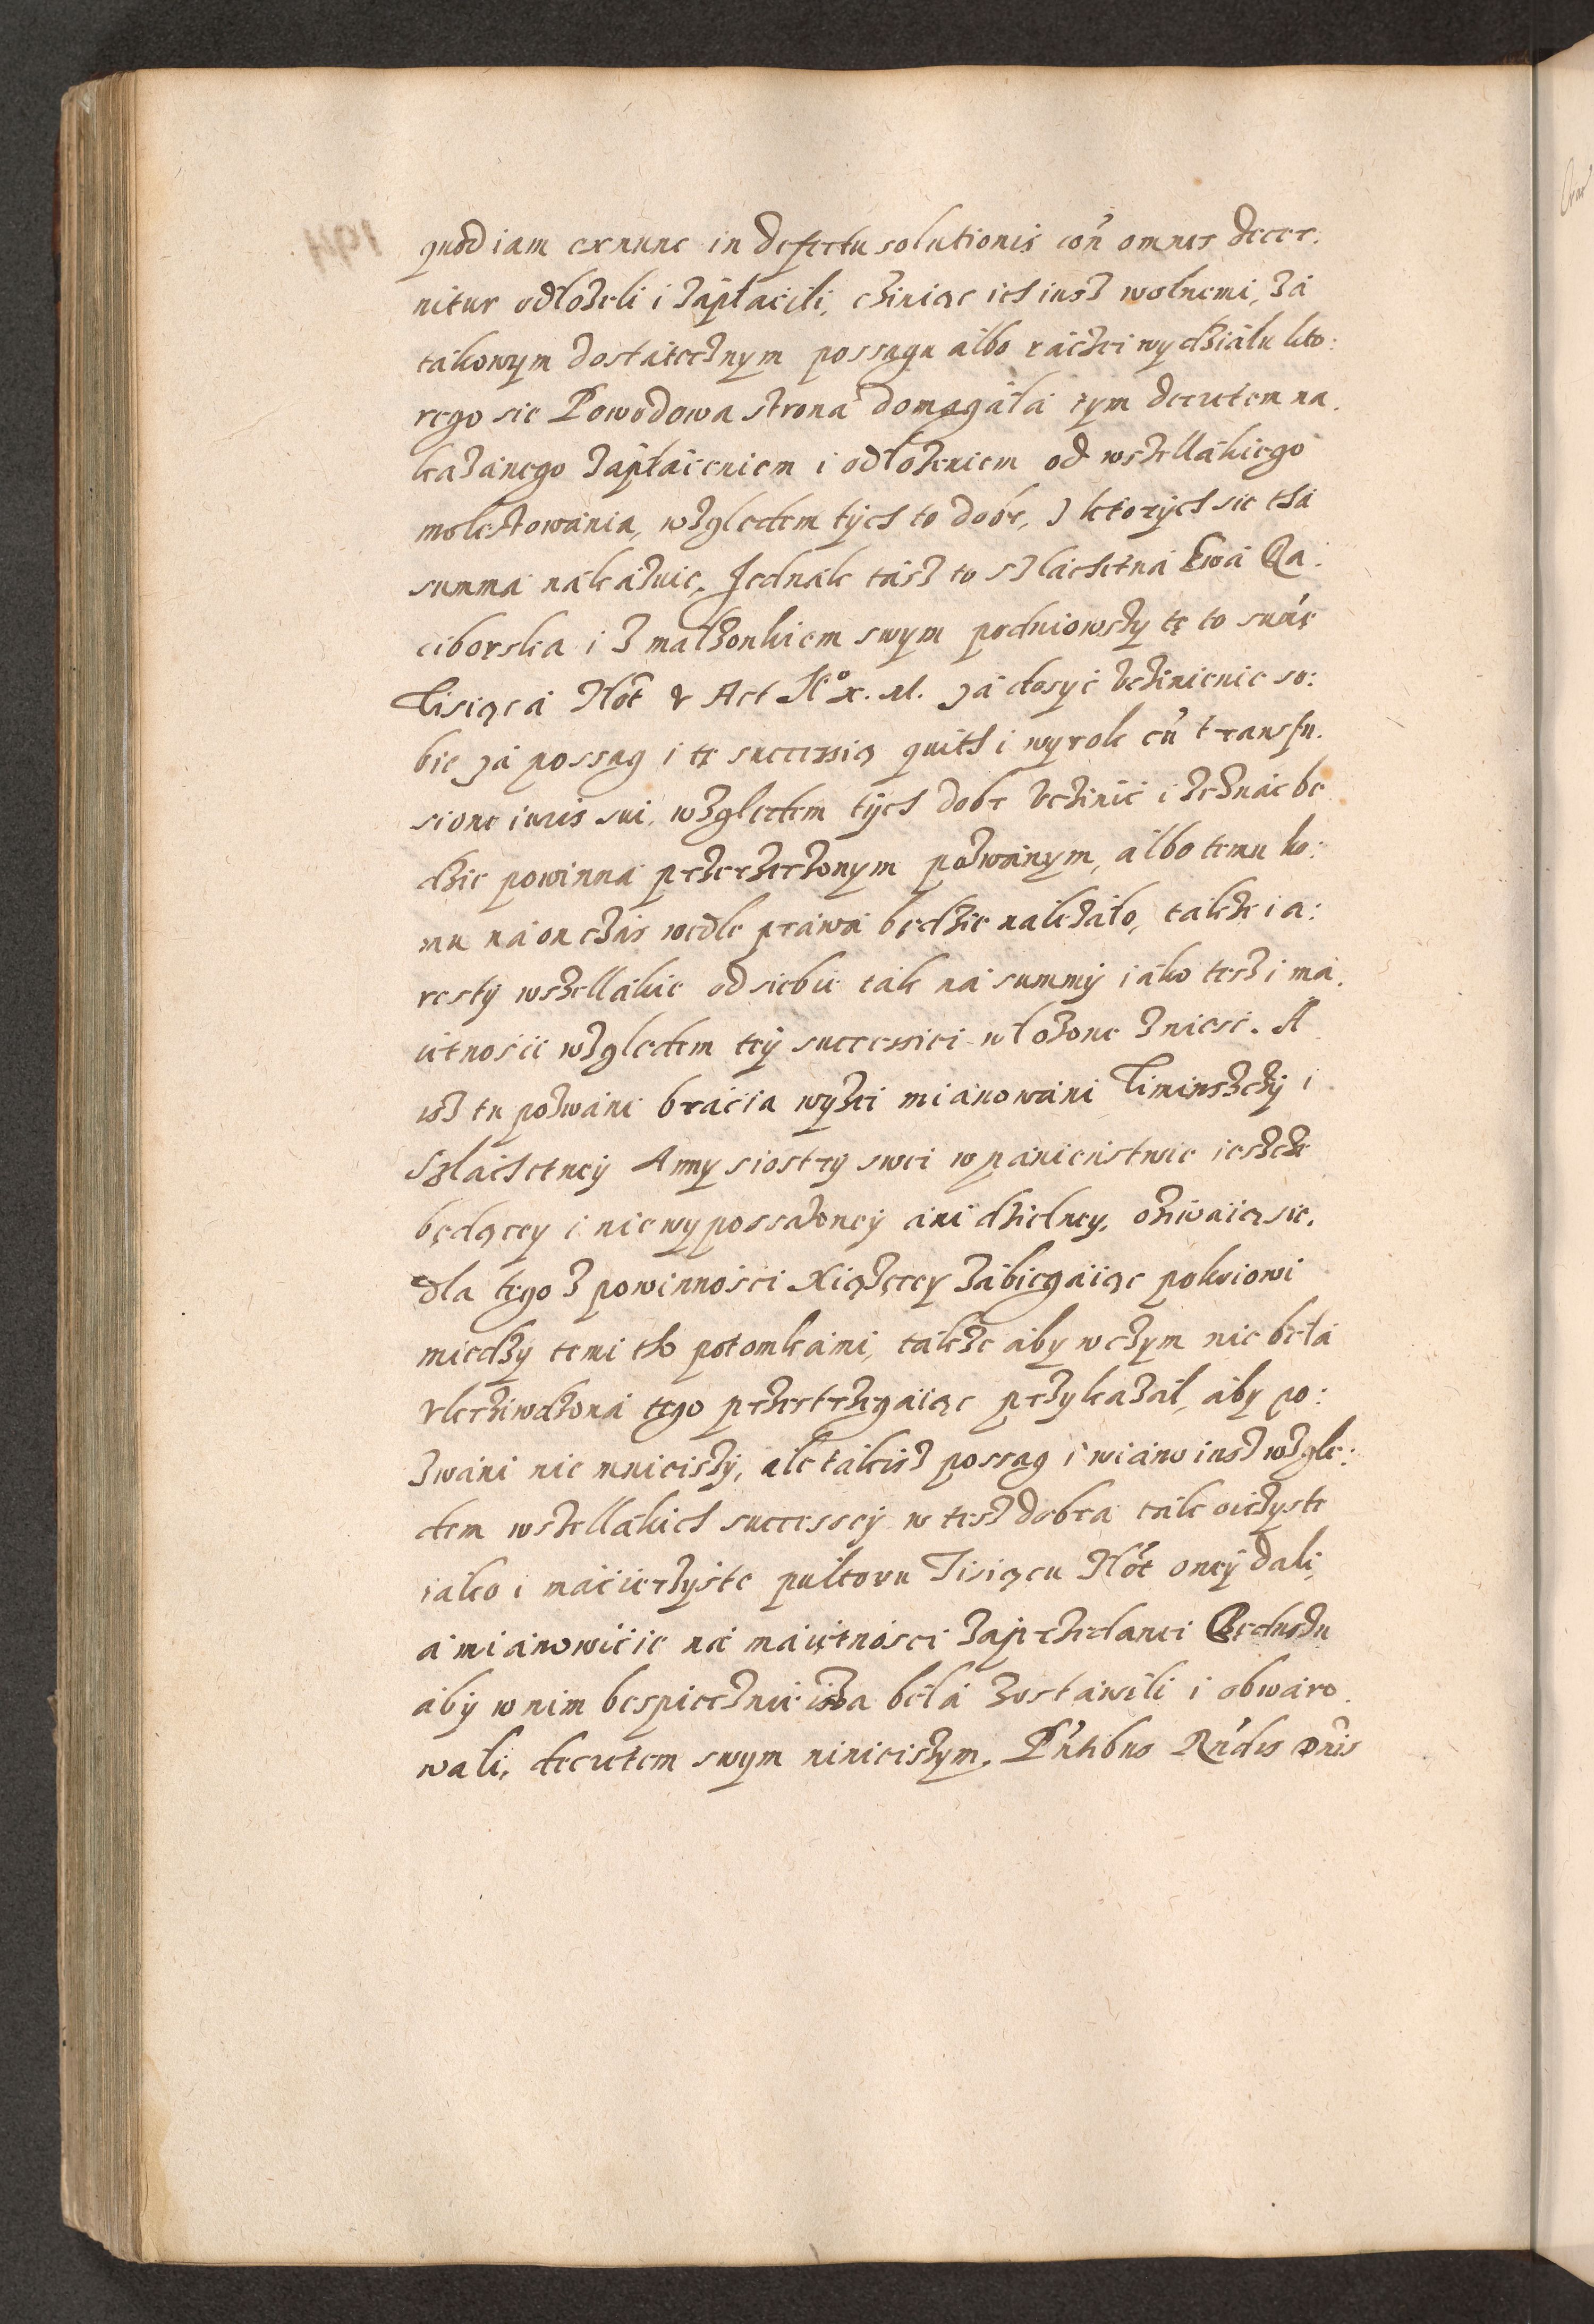 quod iam exnunc in defectu solutionis con̄ omnes decer:
nitur odłożeli i zápłacili, cżiniąc ich iusz wolnemi, zá
tákowym dostátecznym possagu álbo ráczei wydziáłu kto:
rego sie Powodowa strona domagáłá tym decretem na
kazánego zápłáceniem i odłożeniem od wszellákiego
molestowánia, względem tych to dobr, z ktorych sie thá
summá nákázuie, Jednák tász to szláchetná Ewá Ra:
ciborska i z małżonkiem swym podniowszy tę to sum̄ę
Tisiącá Mo̅t &
zá dosyć vczinienie so:
bie zá possag i tę successią quith i wyrok cu̅ transfu:
sione iuris sui, względem tych dobr vczinić i zeznáć be
dzie powinná przerzeczonym pozwánym, álbo temu ko:
mu ná on czás wedle práwá będzie należáło, tákże i a:
resty wszellákie od siebie ták ná summy iáko tesz i má
iętności względem tey successiei włożone znieść. A
isz tu pozwáni bráciá wyżei miánowáni Timinszczy i
Szláchetney Anny siostry swei w pánieństwie ieszcze
będącey i niewypossażoney áni dzielney, ożiwáią sie,
dla tego z powinności Xiążęcey zábiegáiąc pokoiowi
miedzy temi tho potomkámi, tákże áby w czym nie beła
vkrziwdzoná tego przestrzegáiąc przykazał, áby po:
zwáni nie mnieiszy, ále tákisz possag i wiáno iusz wzglę:
dem wszellákich successey w tesz dobra ták oiczyste
iáko i máciezyste pułtoru Tisiącu Mo̅t oney dali,
á miánowicie ná máiętności záprzedánei
áby w nim bespiecznieisza beła zostáwili i obwáro
wali, decretem swym nineiszym. Pn̅tibus Rn̅dis Dn̅is